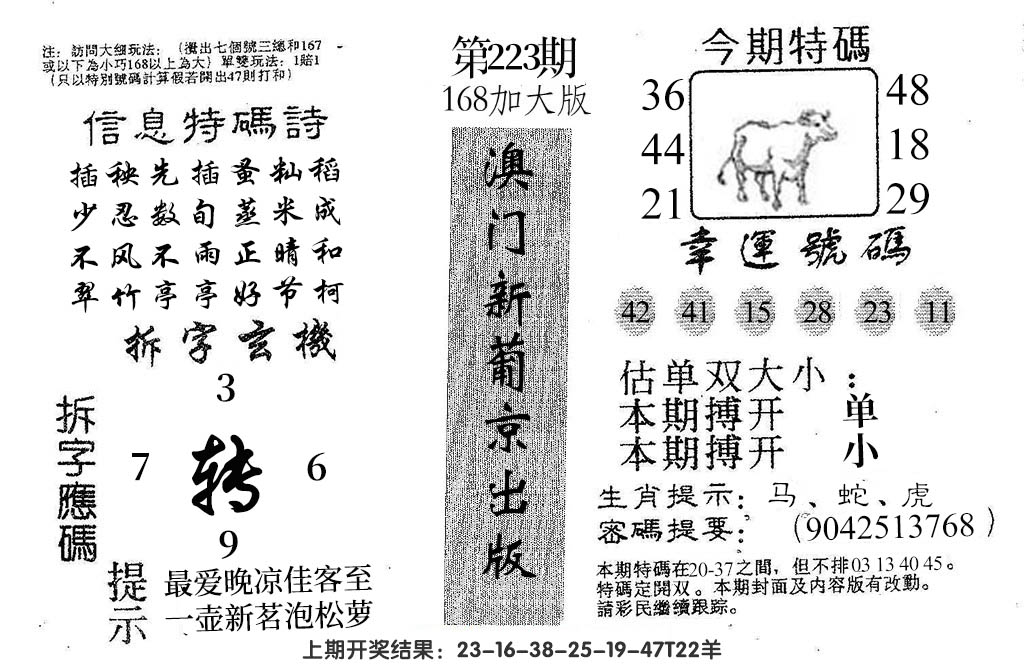 注：訪問大細玩法：（攪出七個號三總和167
或以下為小巧168以上為大）單雙玩法：1賠1
（只以特別號碼計算假若開出47則打和）
信息特碼詩
插秧先插蚤籼稻
少忍数旬蒸米成
不风不雨正晴和
翠竹亭亭好节柯
拆字玄機
拆字應碼
3
7 转 6
9
提示
最爱晚凉佳客至
一壶新茗泡松萝
第223期
168加大版
澳门新葡京出版
今期特碼
36 48
44 18
21 29
幸運號碼
42 41 15 28 23 11
估单双大小：
本期搏开 单
本期搏开 小
生肖提示：马、蛇、虎
密碼提要：（9042513768）
本期特碼在20-37之間，但不排03 13 40 45。
特碼定開双。本期封面及内容版有改動。
請彩民繼續跟踪。
上期开奖结果：23-16-38-25-19-47T22羊